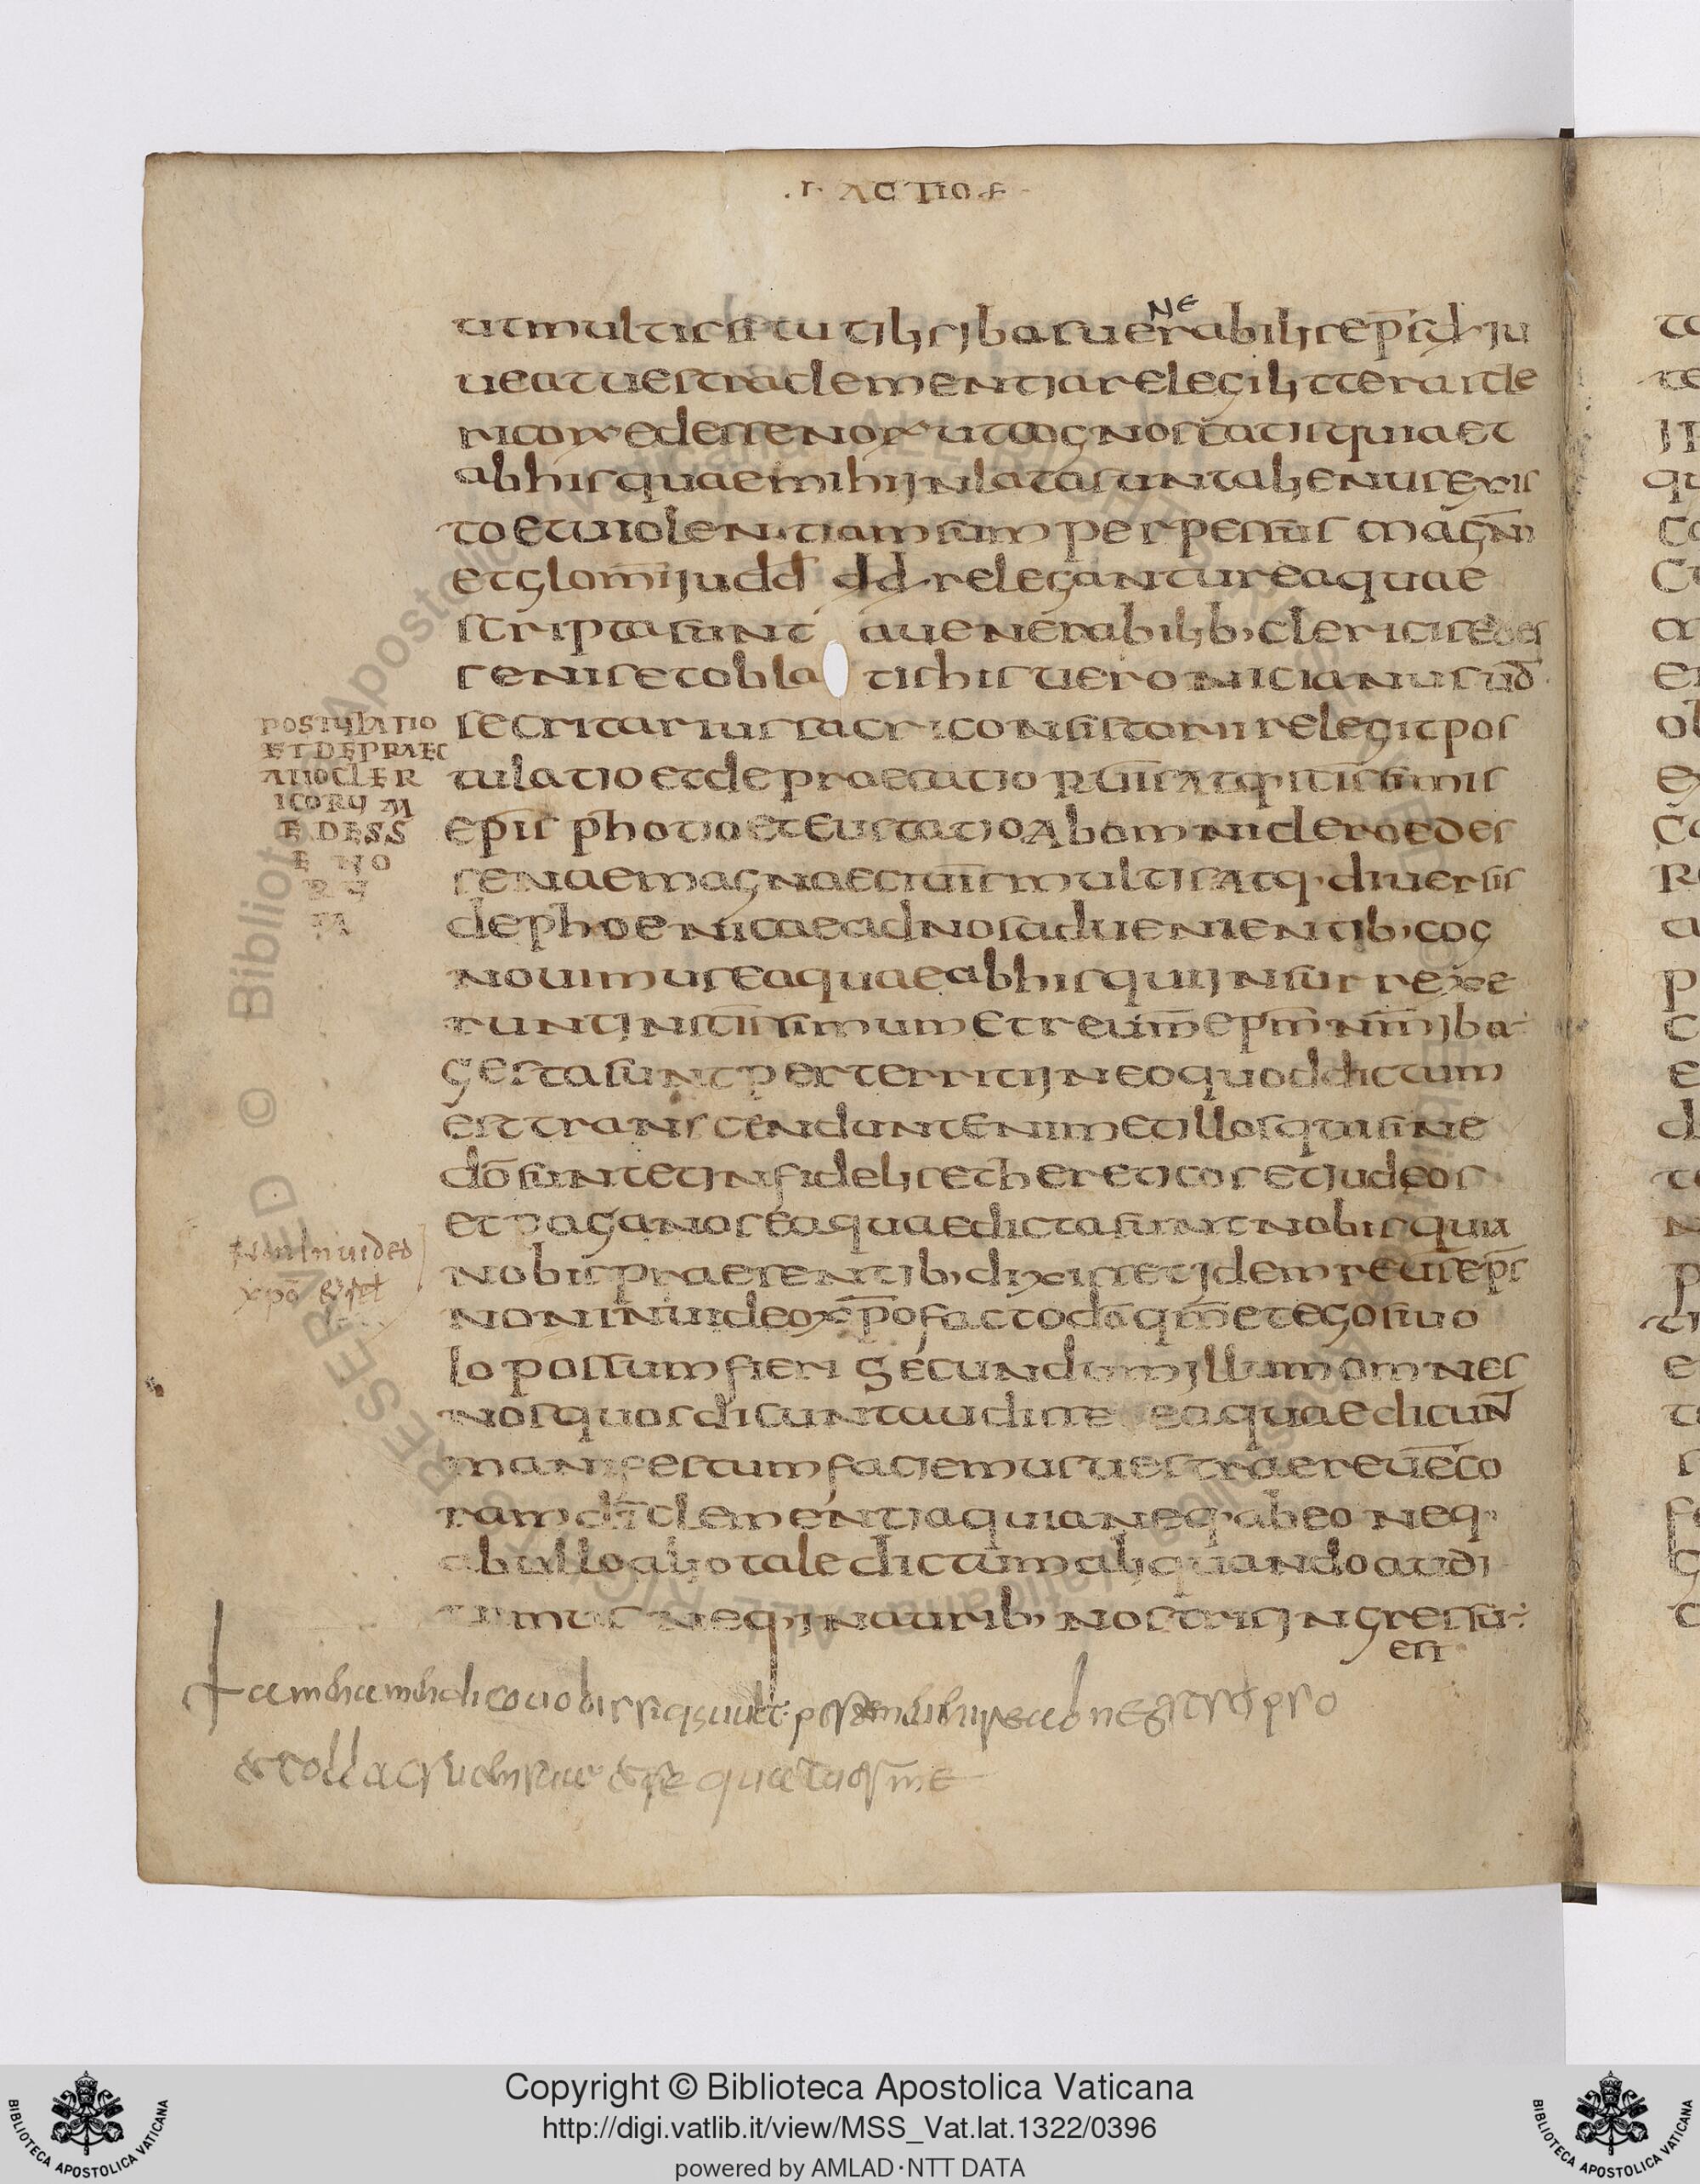 .I. ACTIO
NE
ut multis ututilis ibas uerabilis eps dx iu
ueat uestra clementia relegi litteras cle
ricorx edessenorx ut cognoscatis quia et
ab his quae mihi inlata sunt alienus exis
to et uiolentiam sum perpessus magni
et glom iudd dd relegantur ea quae
scripta sunt a uenerabilib, clericis edes
senis et oblatis his uero nicianus ud
secritarius sacri consistorii relegit pos
tulatio et depraecatio
epis photio et eustatio Ab omni clero edes
senae magnae ciuis multis Atq, diuersis
de phoenicae ad nos aduenientib, cog
nouimus ea quae ab his qui insurrexe
runt in scissimum et reuim epm nm iba
gesta sunt perterriti in eo quod dictum
est transcendunt enim et illos qui sine
do sunt et infidelis et hereticos et iudeos
et paganos ea quae dicta sunt nobis quia
nobis praesentib, dixisset idem reuis eps
non inuideo xpo facto do qm et ego si uo
lo possum fieri Secundum illum omnes
nos quos dicunt audisse ea quae dicun
manifestum faciemus uestrae reue co
ram di clementia quia neq, ab eo neq,
ab ullo alio tale dictum aliquando audi
uimus neq, in aurib, nostris ingressu
est
POSTULATIO
ET DEPRAEC
ATIO CLER
ICORUM
EDESS
ENO
RU
non inuideo
xpo
amen amen dico uobis si quis uult